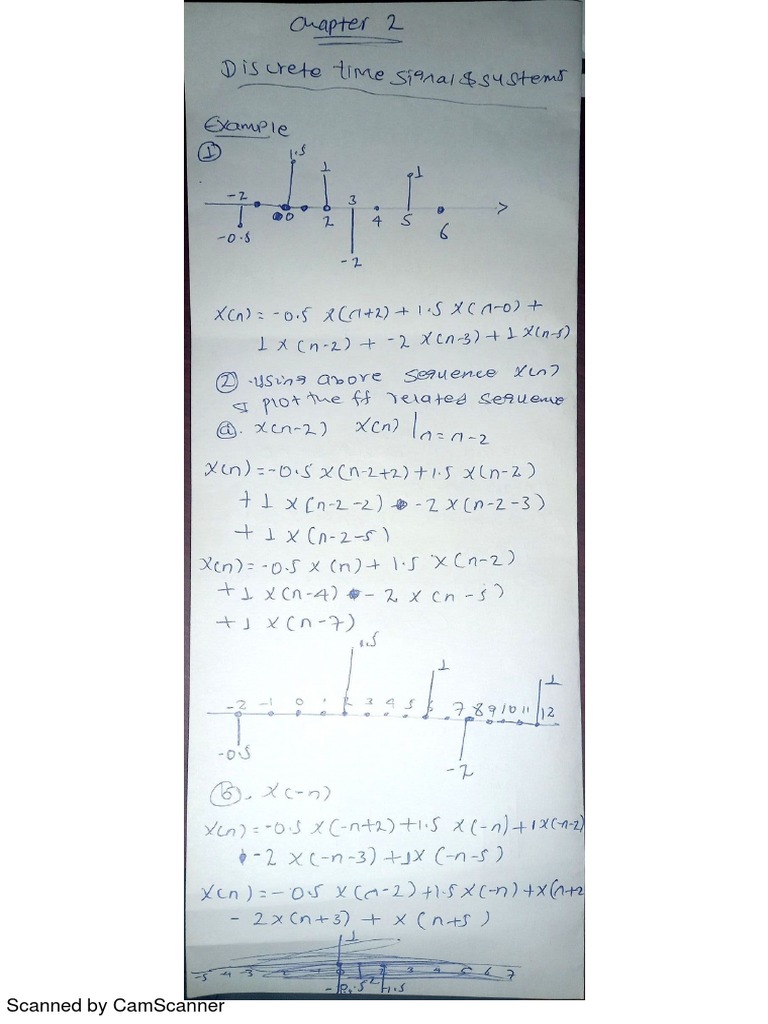 Chapter 2
Discrete time signal & systems
Example
①
1.5 1 1
-2 3
0 2 4 5 6
-0.5
-2
x(n) = -0.5 x(n+2) + 1.5 x(n-0) +
1 x(n-2) + -2 x(n-3) + 1 x(n-5)
② using above sequence x(n)
plot the ff related sequence
ⓐ. x(n-2) x(n) |n=n-2
x(n) = -0.5 x(n-2+2) + 1.5 x(n-2)
+ 1 x(n-2-2) - 2 x(n-2-3)
+ 1 x(n-2-5)
x(n) = -0.5 x(n) + 1.5 x(n-2)
+ 1 x(n-4) - 2 x(n-5)
+ 1 x(n-7)
1.5 1 1
-2 -1 0 1 2 3 4 5 6 7 8 9 10 11 12
-0.5
-2
ⓑ. x(-n)
x(n) = -0.5 x(-n+2) + 1.5 x(-n) + 1x(-n-2)
-2 x(-n-3) + 1x(-n-5)
x(n) = -0.5 x(n-2) + 1.5 x(-n) + x(n+2
- 2x(n+3) + x(n+5)
1
-5 -4 -3 -2 -1 3 4 5 6 7
Scanned by CamScanner